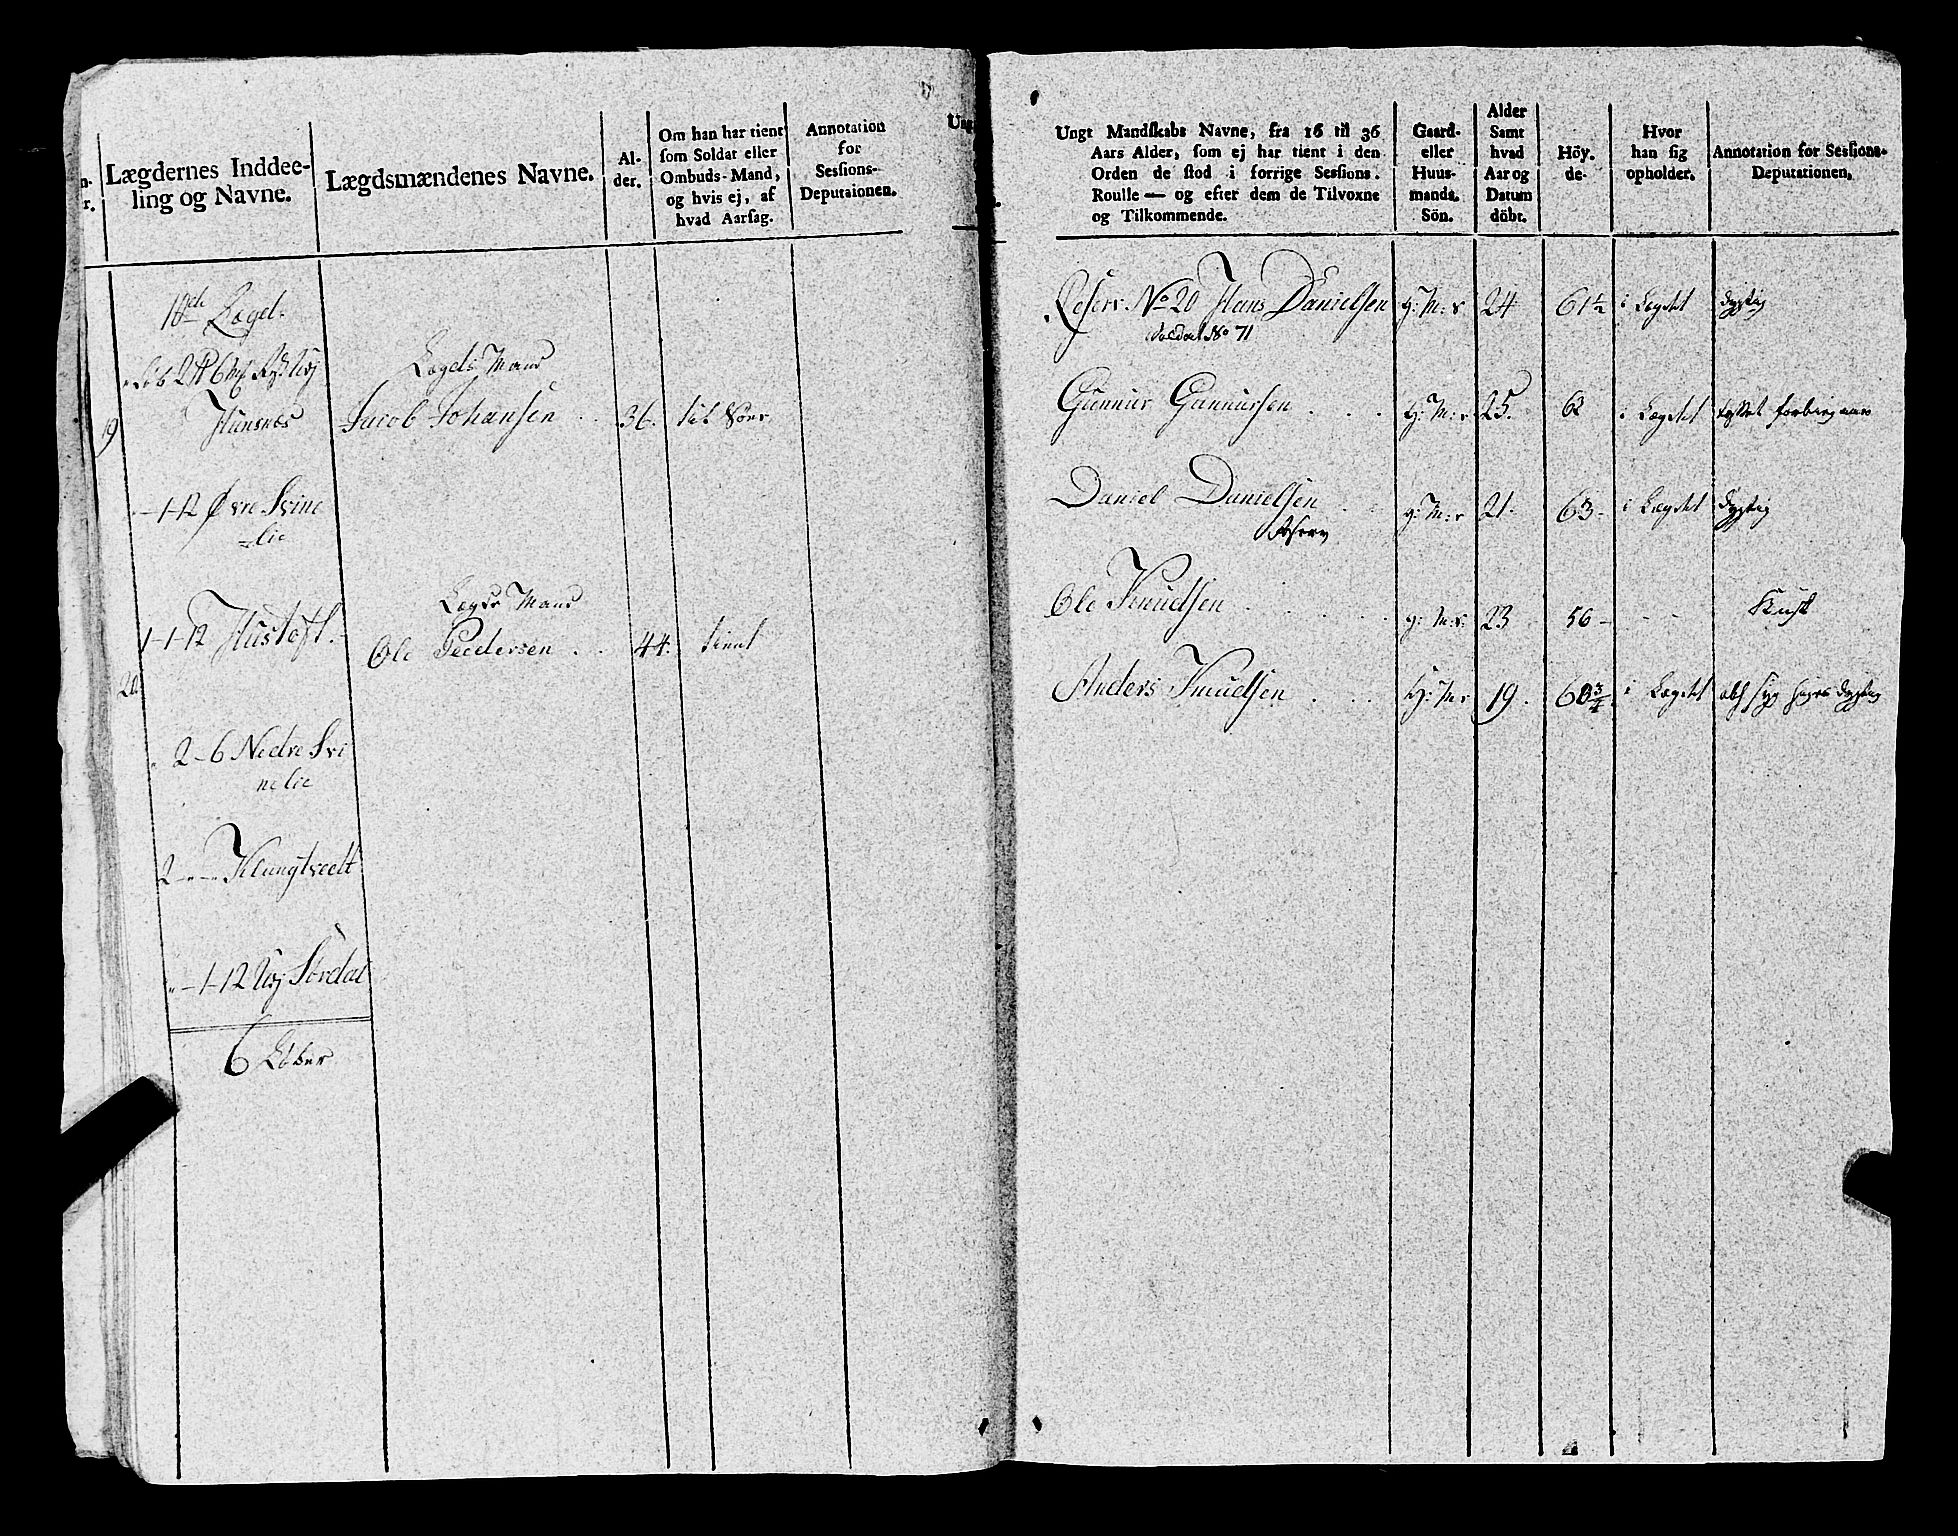 Lægdernes Inddee-
ling og Navne.
Lægdsmændenes Navne.
Al-
der.
Om han har tient
som Soldat eller
Ombuds-Mand,
og hvis ej, af
hvad Aarsag.
Annotation
for
Sessions-
Deputaionen.
10de Lægd.
Hunsnæs
19
Lægds Mand
Jacob Johansen . 36.
1-12 Øvre Svine
=lie
1-1-12 Hustoft.
Lægds Mand
Ole Pedersen . . 44. tient
20
2-6 Nedre Svi
nelie
2 - " - " Klungtvedt
" - 1-12 Sørdal
6 Løber
Ungt Mandskabs Navne, fra 16 til 36
Aars Alder, som ej har tient i den
Orden de stod i forrige Sessions-
Roulle — og efter dem de Tilvoxne
og Tilkommende.
Gaard-
eller
Huus-
mands.
Sön.
Alder
Samt
hvad
Aar og
Datum
döbt.
Höy.
de.
Hvor
han sig
opholder.
Annotation for Sessions-
Deputationen.
Reserv. No 20 Hans Danielsen g: M: s 24 61½ i Lægdet dygtig
Soldat No 71
Gunnar Gunnarsen . . . g: M: s 25. 62 i Lægdet
Daniel Danielsen . . g: M: s 21. 63 - i Lægdet dygtig
Reserv
Ole Knudsen . . . g: M: s: 23 56 - - -
Anders Knudsen . . . g: M: s 19. 60¾ i Lægdet